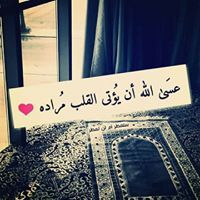 عسَىٰ الله أن يُؤتى القلب مُراده